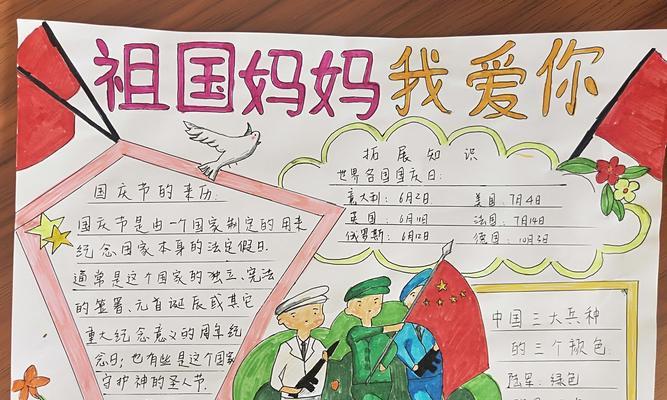 祖国妈妈我爱你
国庆节的来历:
国庆节是由一个国家制定的用来
纪念国家本身的法定假日.
通常是这个国家的独立、宪法
的签署、元首诞辰或其它
重大纪念意义的周年纪
念日;也有些是这个国家
守护神的圣人节.
拓展知识
世界各国国庆日:
意大利: 6月2日 美国: 7月4日
英国: 6月11日 法国: 7月14日
俄罗斯: 6月12日 德国: 10月3日
中国三大兵种
的三个颜色:
陆军: 绿色